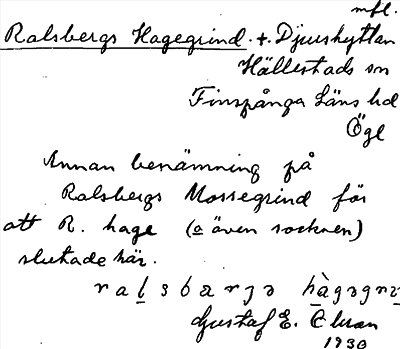 mfl.
Ralsbergs Hagegrind. + Djurshyttan
Hällestads sn
Finspånga läns hd
Ögl
Annan benämning på
Ralsbergs Mossegrind för
att R. hage (o även socknen)
slutade här.
Gustaf E.
1930